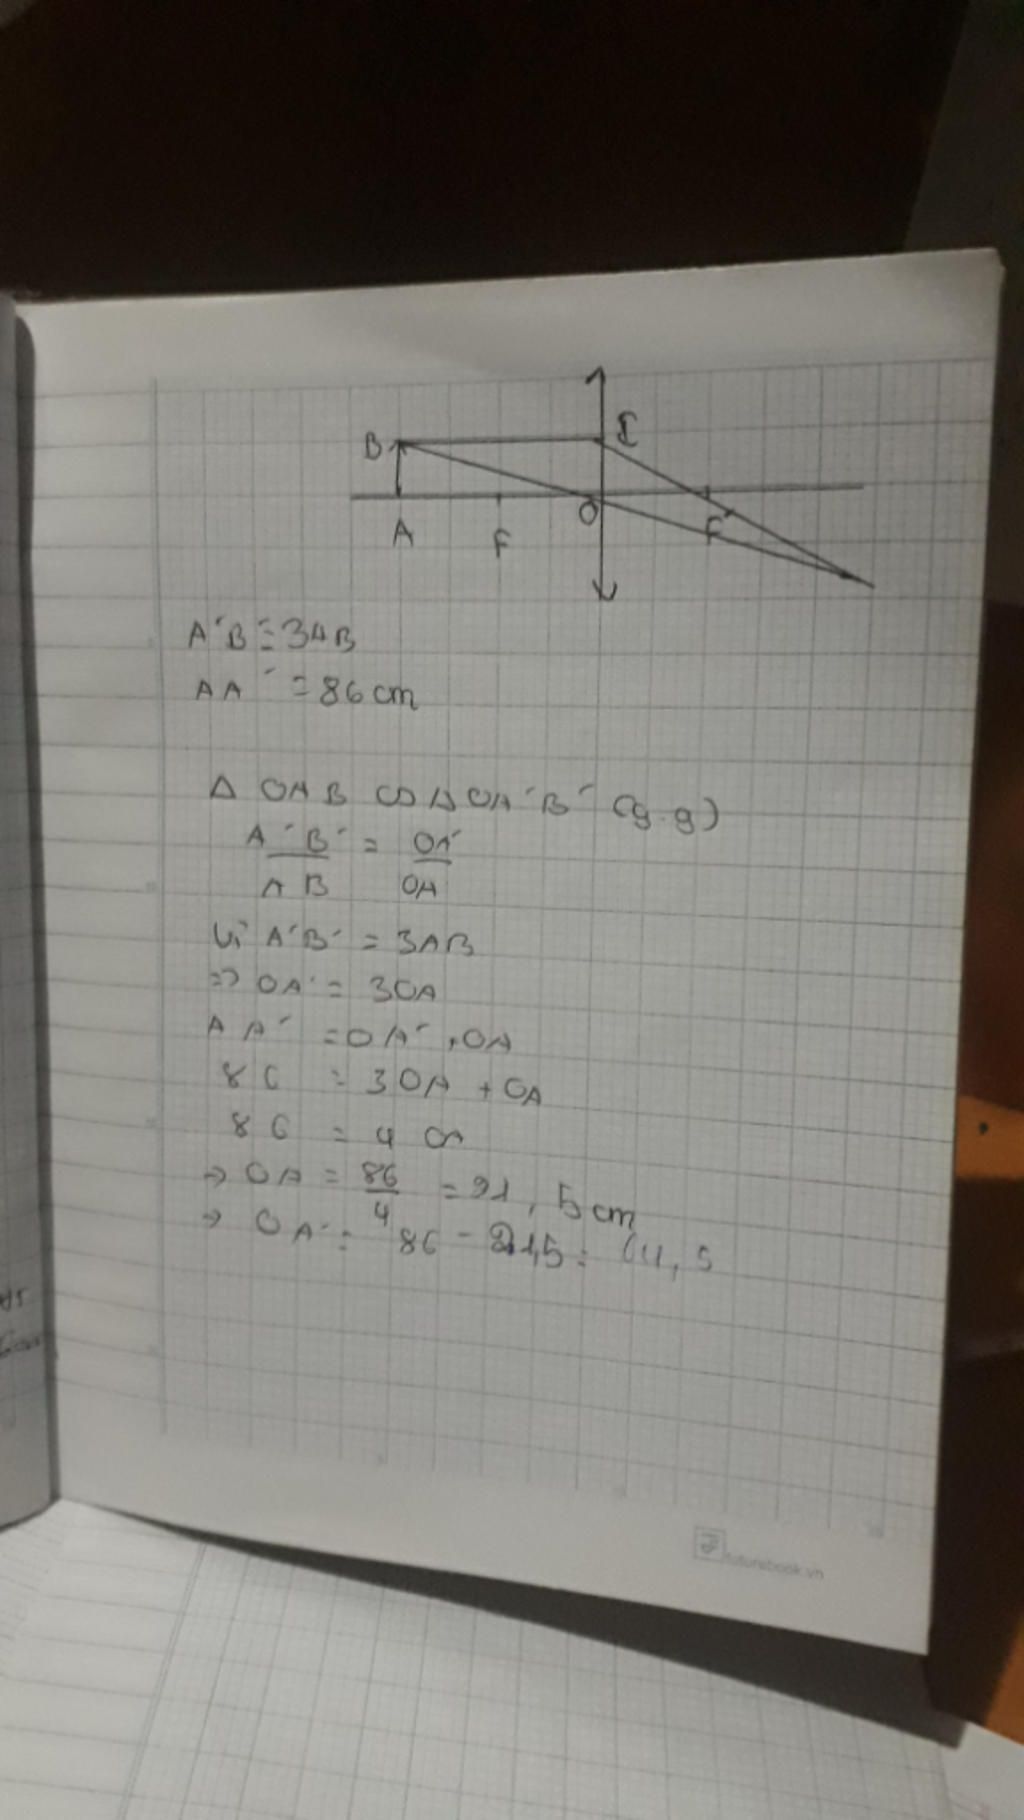 B I
O
A F F'
A'B' = 3AB
AA' = 86 cm
Δ OAB ∽ Δ OA'B' (g.g)
A'B' / AB = OA' / OA
Vì A'B' = 3AB
=> OA' = 3OA
AA' = OA' + OA
86 = 3OA + OA
86 = 4 OA
→ OA = 86 / 4 = 21,5 cm
→ OA' = 86 - 21,5 = 64,5
futurebook.vn